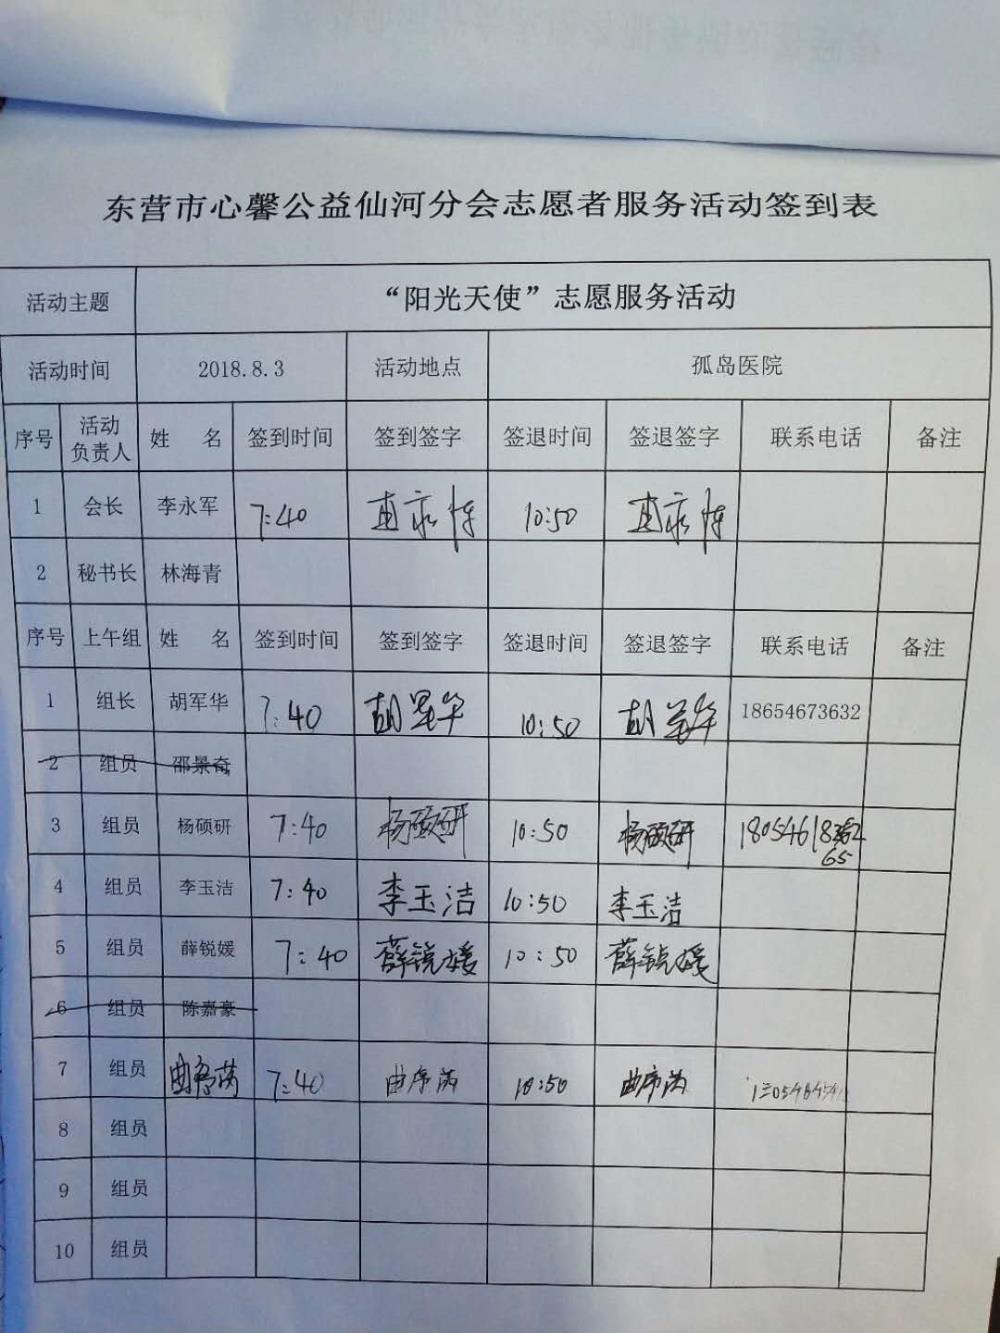 东营市心馨公益仙河分会志愿者服务活动签到表
活动主题 “阳光天使”志愿服务活动
活动时间 2018.8.3 活动地点 孤岛医院
序号 活动负责人 姓 名 签到时间 签到签字 签退时间 签退签字 联系电话 备注
1 会长 李永军 7:40 10:50
2 秘书长 林海青
序号 上午组 姓 名 签到时间 签到签字 签退时间 签退签字 联系电话 备注
1 组长 胡军华 7:40 胡军华 10:50 胡军华 18654673632
2 组员 邵景奇
3 组员 杨硕研 7:40 杨硕研 10:50 杨硕研
4 组员 李玉洁 7:40 李玉洁 10:50 李玉洁
5 组员 薛锐媛 7:40 薛锐媛 10:50 薛锐媛
6 组员 陈嘉豪
7 组员 7:40 10:50
8 组员
9 组员
10 组员